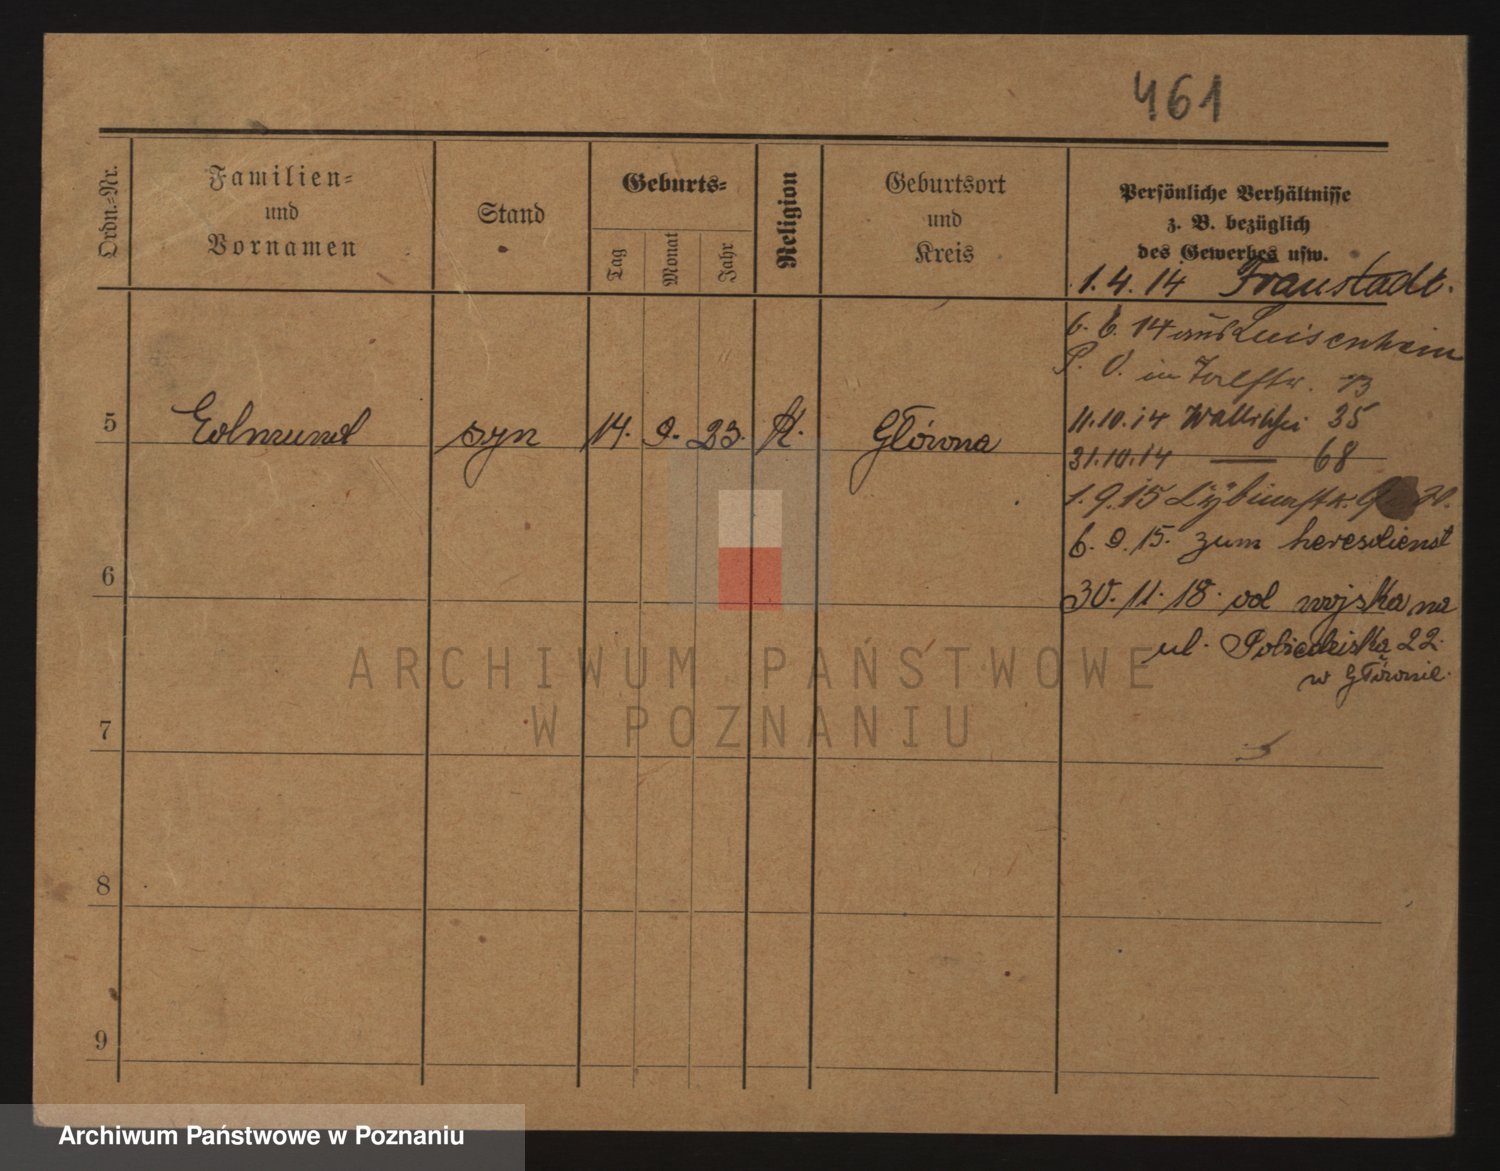 461
Ordn.-Nr.
Familien-
und
Vornamen
Stand
Geburts-
Tag
Monat
Jahr
Religion
Geburtsort
und
Kreis
Persönliche Verhältnisse
z. B. bezüglich
des Gewerbes usw.
1.4.14 Fraustadt.
6.6.14 aus Luisenhain
P. O. in Talstr. 13
5 Edmund syn 14. 9. 23. K. Główna
11.10.14 Wallischei 35
31.10.14 — 68
1.9.15
6.9.15. zum heresdienst
6
30.11.18. od wojska na
ul. Pobiedziska 22.
w Głównie.
7
8
9
ARCHIWUM PAŃSTWOWE
W POZNANIU
Archiwum Państwowe w Poznaniu